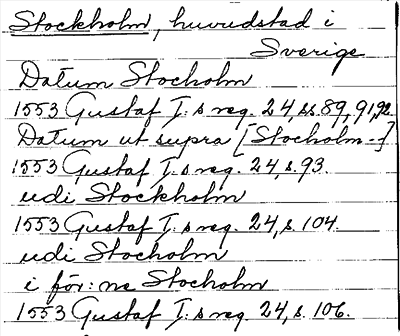 Stockholm, huvudstad i
Sverige
Datum Stocholm
1553 Gustaf I:s reg. 24, ss. 89, 91, 92.
Datum ut supra [Stocholm-]
1553 Gustaf I:s reg. 24, s. 93.
udi Stockholm
1553 Gustaf I:s reg. 24, s. 104.
udi Stocholm
i för:ne Stocholm
1553 Gustaf I:s reg. 24, s. 106.